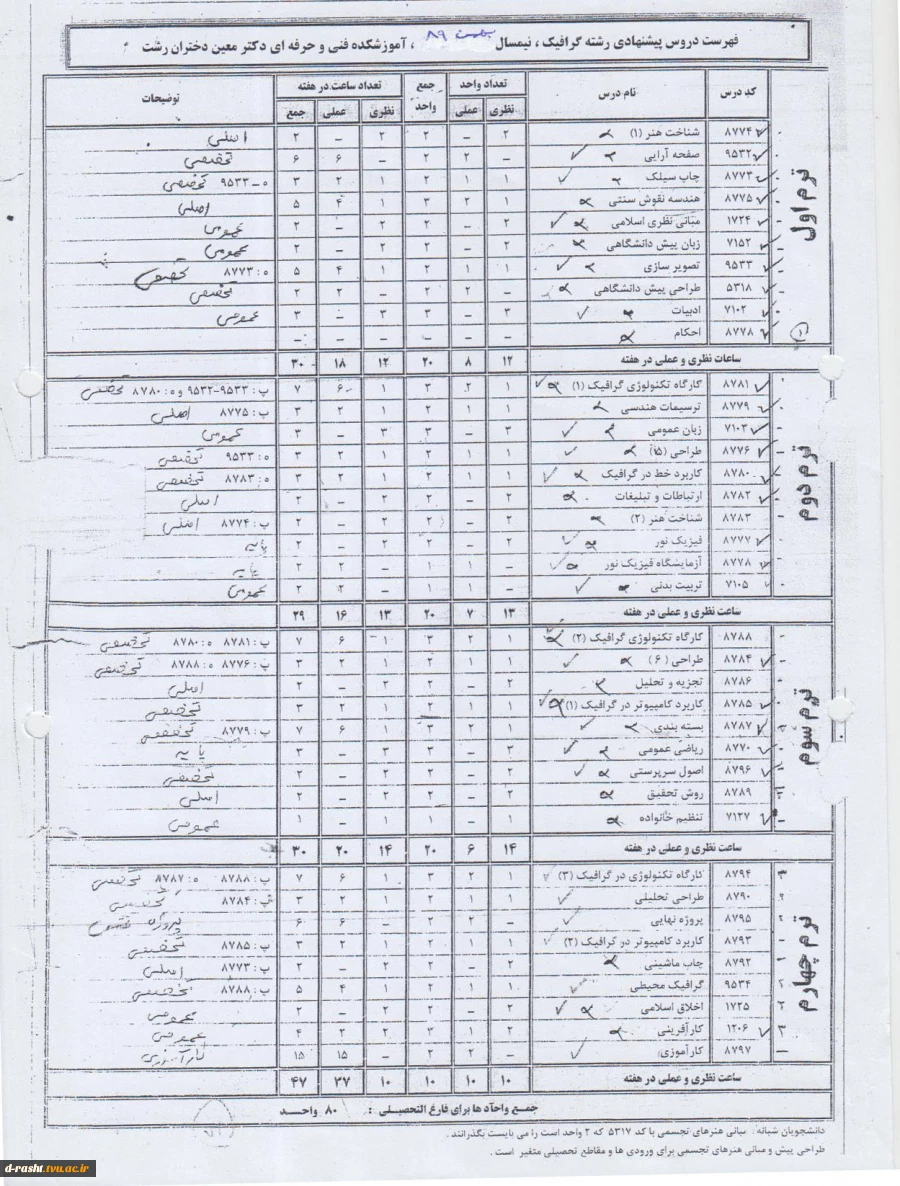 فهرست دروس پیشنهادی رشته گرافیک ، نیمسال بهمن ۸۹ ، آموزشکده فنی و حرفه ای دکتر معین دختران رشت
کد درس نام درس تعداد واحد جمع واحد تعداد ساعت در هفته توضیحات
نظری عملی نظری عملی جمع
ترم اول
۸۷۷۴ شناخت هنر (۱) ۲ – ۲ ۲ – ۲ اصلی
۹۵۳۲ صفحه آرایی – ۲ ۲ – ۶ ۶ تخصصی
۸۷۷۳ چاپ سیلک ۱ ۱ ۲ ۱ ۲ ۳ ه–۹۵۳۳ تخصصی
۸۷۷۵ هندسه نقوش سنتی ۱ ۲ ۳ ۱ ۴ ۵ اصلی
۱۷۲۴ مبانی نظری اسلامی ۲ – ۲ ۲ – ۲ عمومی
۷۱۵۲ زبان پیش دانشگاهی ۲ – ۲ ۲ – ۲ عمومی
۹۵۳۳ تصویر سازی ۱ ۱ ۲ ۱ ۴ ۵ ه: ۸۷۷۳ تخصصی
۵۳۱۸ طراحی پیش دانشگاهی – ۲ ۲ – ۲ ۲ تخصصی
۷۱۰۲ ادبیات ۳ – ۳ ۳ – ۳ عمومی
۸۷۷۸ احکام – – – – – –
ساعات نظری و عملی در هفته ۱۲ ۸ ۲۰ ۱۲ ۱۸ ۳۰
ترم دوم
۸۷۸۱ کارگاه تکنولوژی گرافیک (۱) ۱ ۲ ۳ ۱ ۶ ۷ پ: ۹۵۳۳–۹۵۳۲ و ه: ۸۷۸۰ تخصصی
۸۷۷۹ ترسیمات هندسی ۱ ۱ ۲ ۱ ۲ ۳ پ: ۸۷۷۵ اصلی
۷۱۰۳ زبان عمومی ۳ – ۳ ۳ – ۳ عمومی
۸۷۷۶ طراحی (۵) ۱ ۱ ۲ ۱ ۲ ۳ ه: ۹۵۳۳ تخصصی
۸۷۸۰ کاربرد خط در گرافیک ۱ ۱ ۲ ۱ ۲ ۳ ه: ۸۷۸۳ تخصصی
۸۷۸۲ ارتباطات و تبلیغات ۲ – ۲ ۲ – ۲ اصلی
۸۷۸۳ شناخت هنر (۲) ۲ – ۲ ۲ – ۲ پ: ۸۷۷۴ اصلی
۸۷۷۷ فیزیک نور ۲ – ۲ ۲ – ۲ پایه
۸۷۷۸ آزمایشگاه فیزیک نور – ۱ ۱ – ۲ ۲ پایه
۷۱۰۵ تربیت بدنی – ۱ ۱ – ۲ ۲ عمومی
ساعت نظری و عملی در هفته ۱۳ ۷ ۲۰ ۱۳ ۱۶ ۲۹
ترم سوم
۸۷۸۸ کارگاه تکنولوژی گرافیک (۲) ۱ ۲ ۳ ۱ ۶ ۷ پ: ۸۷۸۱ ه: ۸۷۸۰ تخصصی
۸۷۸۴ طراحی (۶) ۱ ۱ ۲ ۱ ۲ ۳ پ: ۸۷۷۶ ه: ۸۷۸۸ تخصصی
۸۷۸۶ تجزیه و تحلیل ۲ – ۲ ۲ – ۲ اصلی
۸۷۸۵ کاربرد کامپیوتر در گرافیک (۱) ۱ ۱ ۲ ۱ ۲ ۳ تخصصی
۸۷۸۷ بسته بندی ۱ ۲ ۳ ۱ ۶ ۷ پ: ۸۷۷۹ تخصصی
۸۷۷۰ ریاضی عمومی ۳ – ۳ ۳ – ۳ پایه
۸۷۹۶ اصول سرپرستی ۲ – ۲ ۲ – ۲ تخصصی
۸۷۸۹ روش تحقیق ۲ – ۲ ۲ – ۲ اصلی
۷۱۲۷ تنظیم خانواده ۱ – ۱ ۱ – ۱ عمومی
ساعت نظری و عملی در هفته ۱۴ ۶ ۲۰ ۱۴ ۲۰ ۳۰
ترم چهارم
۸۷۹۴ کارگاه تکنولوژی در گرافیک (۳) ۱ ۲ ۳ ۱ ۶ ۷ پ: ۸۷۸۸ ه: ۸۷۸۷ تخصصی
۸۷۹۰ طراحی تحلیلی ۱ ۱ ۲ ۱ ۲ ۳ پ: ۸۷۸۴ تخصصی
۸۷۹۵ پروژه نهایی – ۲ ۲ – ۶ ۶ پروژه
۸۷۹۳ کاربرد کامپیوتر در گرافیک (۲) ۱ ۱ ۲ ۱ ۲ ۳ پ: ۸۷۸۵ تخصصی
۸۷۹۲ چاپ ماشینی ۲ – ۲ ۲ – ۲ پ: ۸۷۷۳ اصلی
۹۵۳۴ گرافیک محیطی ۱ ۱ ۲ ۱ ۴ ۵ پ: ۸۷۸۸ تخصصی
۱۷۲۵ اخلاق اسلامی ۲ – ۲ ۲ – ۲ عمومی
۱۲۰۶ کارآفرینی ۲ ۱ ۳ ۲ ۲ ۴ عمومی
۸۷۹۷ کارآموزی – ۲ ۲ – ۱۵ ۱۵ کارآموزی
ساعت نظری و عملی در هفته ۱۰ ۱۰ ۱۰ ۱۰ ۳۷ ۴۷
جمع واحد ها برای فارغ التحصیلی : ۸۰ واحد
دانشجویان شبانه : مبانی هنرهای تجسمی با کد ۵۳۱۷ که ۲ واحد است را می بایست بگذرانند .
طراحی پیش و مبانی هنرهای تجسمی برای ورودی ها و مقاطع تحصیلی متغیر است .
d-rasht.tvu.ac.ir